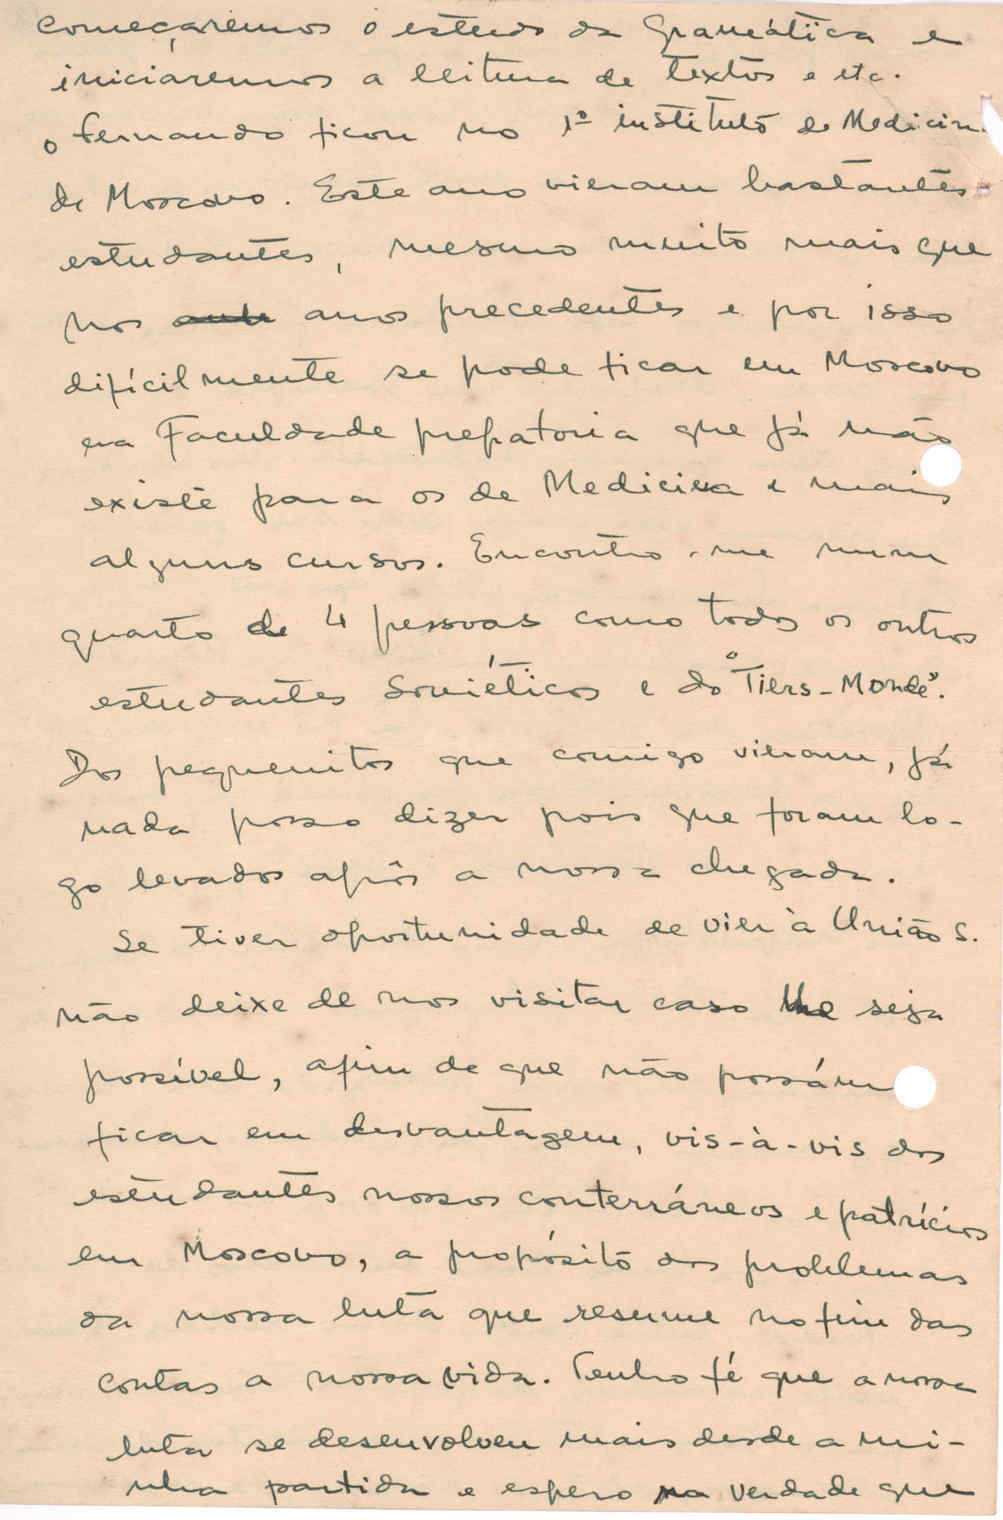 começaremos o estudo da Gramática e
iniciaremos a leitura de textos e etc.
o Fernando ficou no 1º instituto de Medicin
de Moscovo. Este ano vieram bastantes
estudantes, mesmo muito mais que
nos anos precedentes e por isso
difícilmente se pode ficar em Moscovo
na Faculdade prepatoria que já não
existe para os de Medicina e mais
alguns cursos. Encontro-me num
quarto de 4 pessoas como todos os outros
estudantes Soviéticos e do "Tiers-Monde".
Dos pequenitos que comigo vieram, já
nada posso dizer pois que foram lo-
go levados após a nossa chegada.
Se tiver oportunidade de vier à União S.
não deixe de nos visitar caso lhe seja
possível, afim de que não possám
ficar em desvantagem, vis-à-vis dos
estudantes nossos conterráneos e patrícios
em Moscovo, a propósito dos problemas
da nossa luta que resume no fim das
contas a nossa vida. Tenho fé que a nossa
luta se desenvolveu mais desde a mi-
nha partida e espero na verdade que